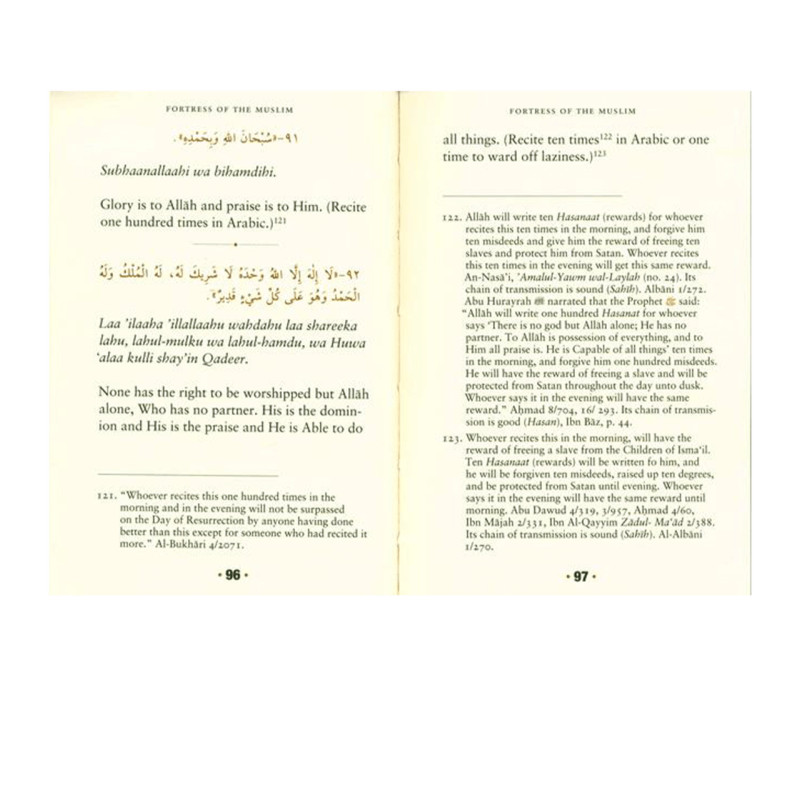 FORTRESS OF THE MUSLIM
٩١-«سُبْحَانَ اللهِ وَبِحَمْدِهِ».
Subhaanallaahi wa bihamdihi.
Glory is to Allāh and praise is to Him. (Recite
one hundred times in Arabic.)121
٩٢-«لَا إِلَهَ إِلَّا اللهُ وَحْدَهُ لَا شَرِيكَ لَهُ، لَهُ الْمُلْكُ وَلَهُ
الْحَمْدُ وَهُوَ عَلَى كُلِّ شَيْءٍ قَدِيرٌ».
Laa 'ilaaha 'illallaahu wahdahu laa shareeka
lahu, lahul-mulku wa lahul-hamdu, wa Huwa
'alaa kulli shay'in Qadeer.
None has the right to be worshipped but Allāh
alone, Who has no partner. His is the domin-
ion and His is the praise and He is Able to do
121. "Whoever recites this one hundred times in the
morning and in the evening will not be surpassed
on the Day of Resurrection by anyone having done
better than this except for someone who had recited it
more." Al-Bukhāri 4/2071.
• 96 •
FORTRESS OF THE MUSLIM
all things. (Recite ten times122 in Arabic or one
time to ward off laziness.)123
122. Allāh will write ten Hasanaat (rewards) for whoever
recites this ten times in the morning, and forgive him
ten misdeeds and give him the reward of freeing ten
slaves and protect him from Satan. Whoever recites
this ten times in the evening will get this same reward.
An-Nasā'i, 'Amalul-Yawm wal-Laylah (no. 24). Its
chain of transmission is sound (Sahīh). Albāni 1/272.
Abu Hurayrah narrated that the Prophet ﷺ said:
"Allāh will write one hundred Hasanat for whoever
says 'There is no god but Allāh alone; He has no
partner. To Allāh is possession of everything, and to
Him all praise is. He is Capable of all things' ten times
in the morning, and forgive him one hundred misdeeds.
He will have the reward of freeing a slave and will be
protected from Satan throughout the day unto dusk.
Whoever says it in the evening will have the same
reward." Aḥmad 8/704, 16/ 293. Its chain of transmis-
sion is good (Hasan), Ibn Bāz, p. 44.
123. Whoever recites this in the morning, will have the
reward of freeing a slave from the Children of Isma'il.
Ten Hasanaat (rewards) will be written fo him, and
he will be forgiven ten misdeeds, raised up ten degrees,
and be protected from Satan until evening. Whoever
says it in the evening will have the same reward until
morning. Abu Dawud 4/319, 3/957, Aḥmad 4/60,
Ibn Mājah 2/331, Ibn Al-Qayyim Zādul- Ma'ād 2/388.
Its chain of transmission is sound (Sahīh). Al-Albāni
1/270.
• 97 •